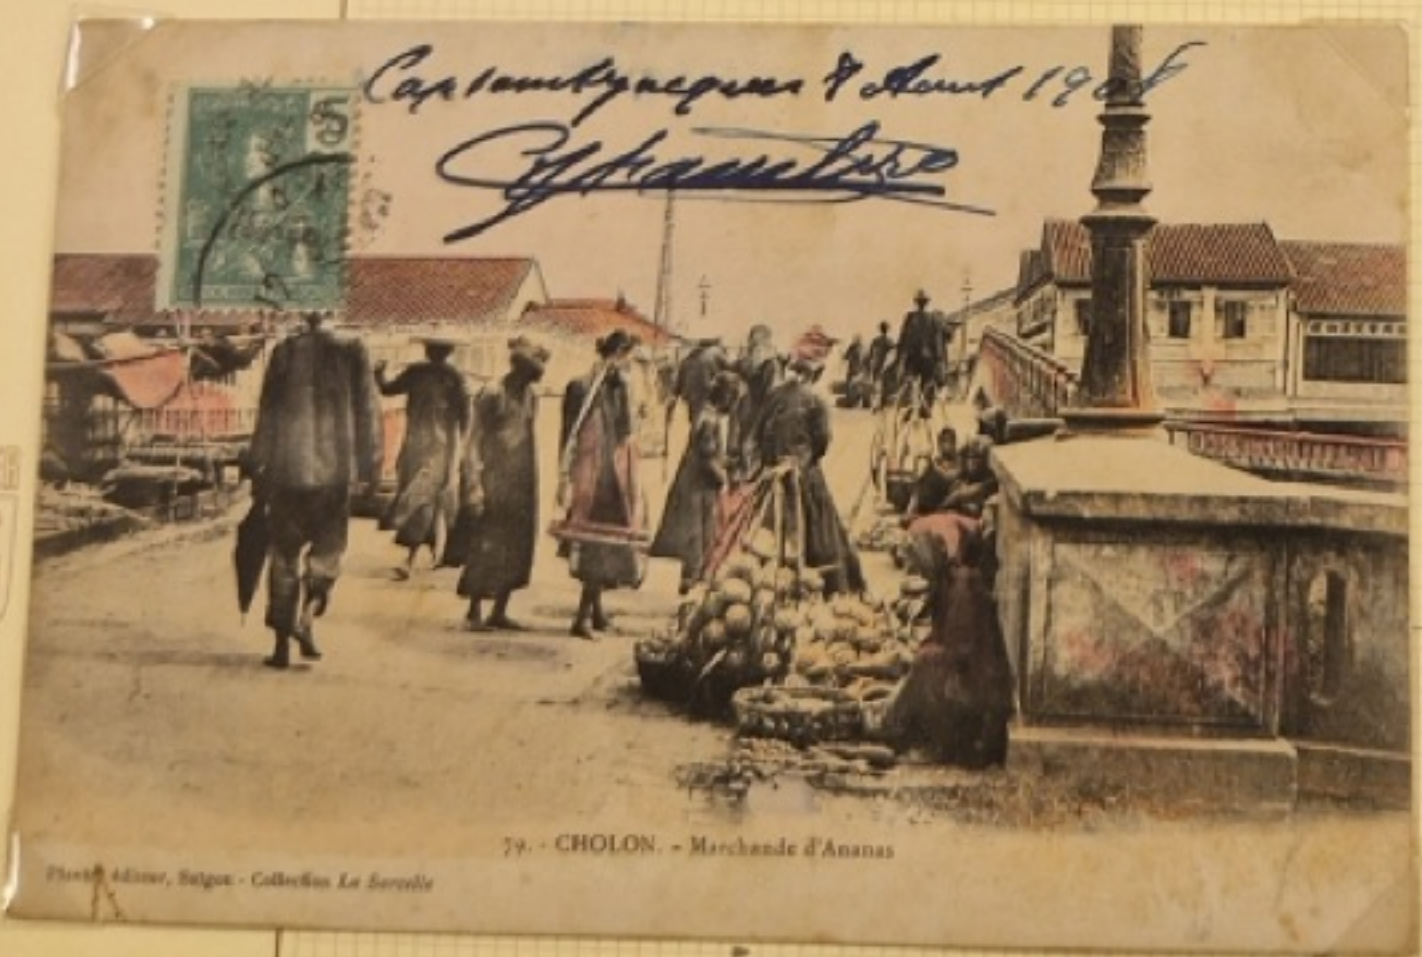 Cap Saint Jacques 8 Aout 1908
5
79. - CHOLON. - Marchande d'Ananas
Planté éditeur, Saigon - Collection La Sarcelle